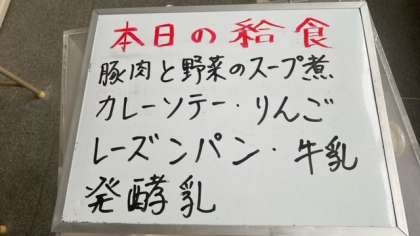 本日の給食
豚肉と野菜のスープ煮
カレーソテー・りんご
レーズンパン・牛乳
発酵乳